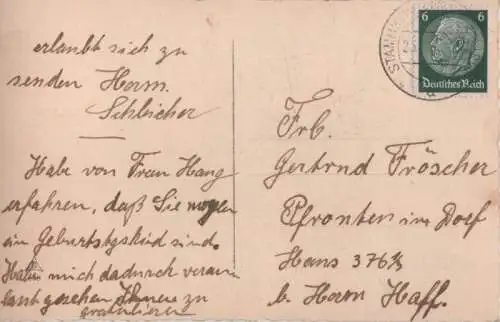 erlaubt sich zu
senden Herm.
Schleicher
Habe von Frau Hang
erfahren, daß Sie morgen
ein Geburtstgskind sind.
Habe mich dadurch veran
last gesehen Ihnen zu
gratulieren
6 6
Deutsches Reich
STARN
Frl.
Gertrud Fröscher
Pfronten im Dorf
Haus 376 ½
b. Herrn Haff.